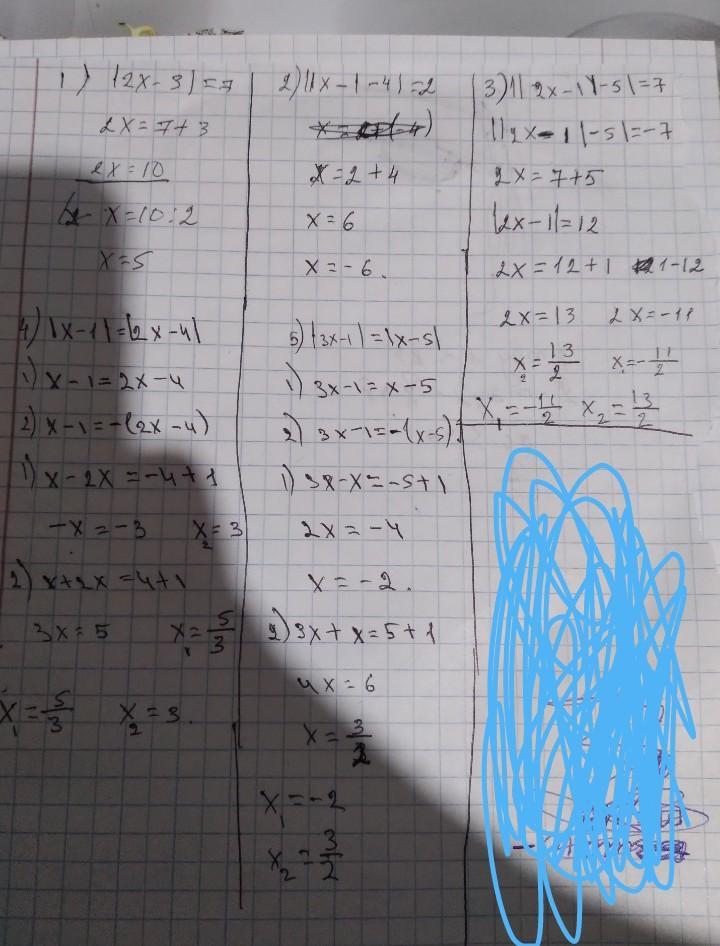 1) |2x-3|=7
2x=7+3
2x=10
x=10:2
x=5
2) ||x-|-4|=2
x=2+4
x=6
x=-6.
3) || 2x-1|-5|=7
||2x-1|-5|=-7
2x=7+5
|2x-1|=12
2x=12+1 1-12
2x=13 2x=-11
x₂=13/2 x₁=-11/2
x₁=-11/2 x₂=13/2
4) |x-1|=|2x-4|
1) x-1=2x-4
2) x-1=-(2x-4)
1) x-2x=-4+1
-x=-3 x₂=3
2) x+2x=4+1
3x=5 x₁=5/3
x₁=5/3 x₂=3.
5) |3x-1|=|x-5|
1) 3x-1=x-5
2) 3x-1=-(x-5)
1) 3x-x=-5+1
2x=-4
x=-2.
2) 3x+x=5+1
4x=6
x=3/2
x₁=-2
x₂=3/2